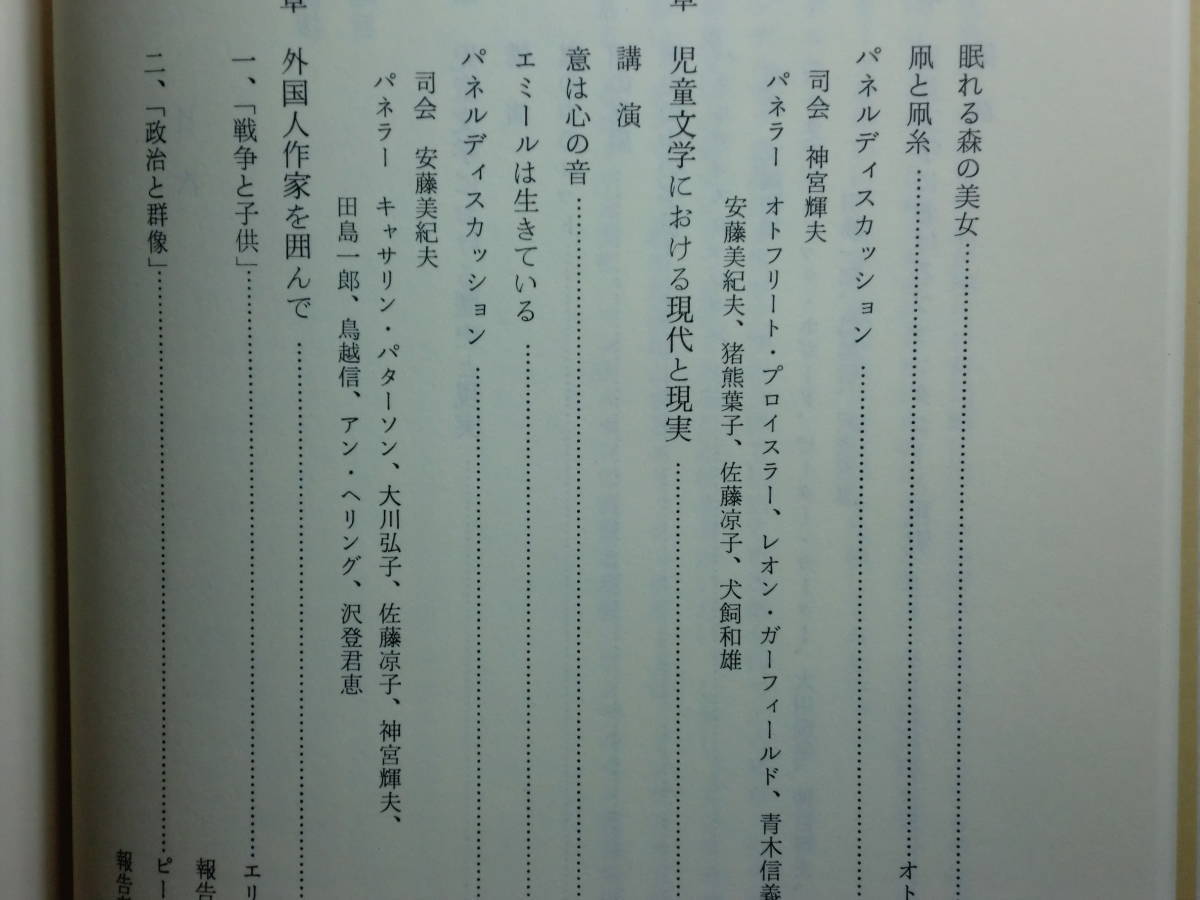 眠れる森の美女……
凧と凧糸……オト
パネルディスカッション……
司会　神宮輝夫
パネラー　オトフリート・プロイスラー、レオン・ガーフィールド、青木信義
安藤美紀夫、猪熊葉子、佐藤凉子、犬飼和雄
章　児童文学における現代と現実……
講　演
意は心の音……
エミールは生きている……
パネルディスカッション……
司会　安藤美紀夫
パネラー　キャサリン・パターソン、大川弘子、佐藤凉子、神宮輝夫、
田島一郎、鳥越信、アン・ヘリング、沢登君恵
章　外国人作家を囲んで……
一、「戦争と子供」……エリ
報告
二、「政治と群像」……ピー
報告者